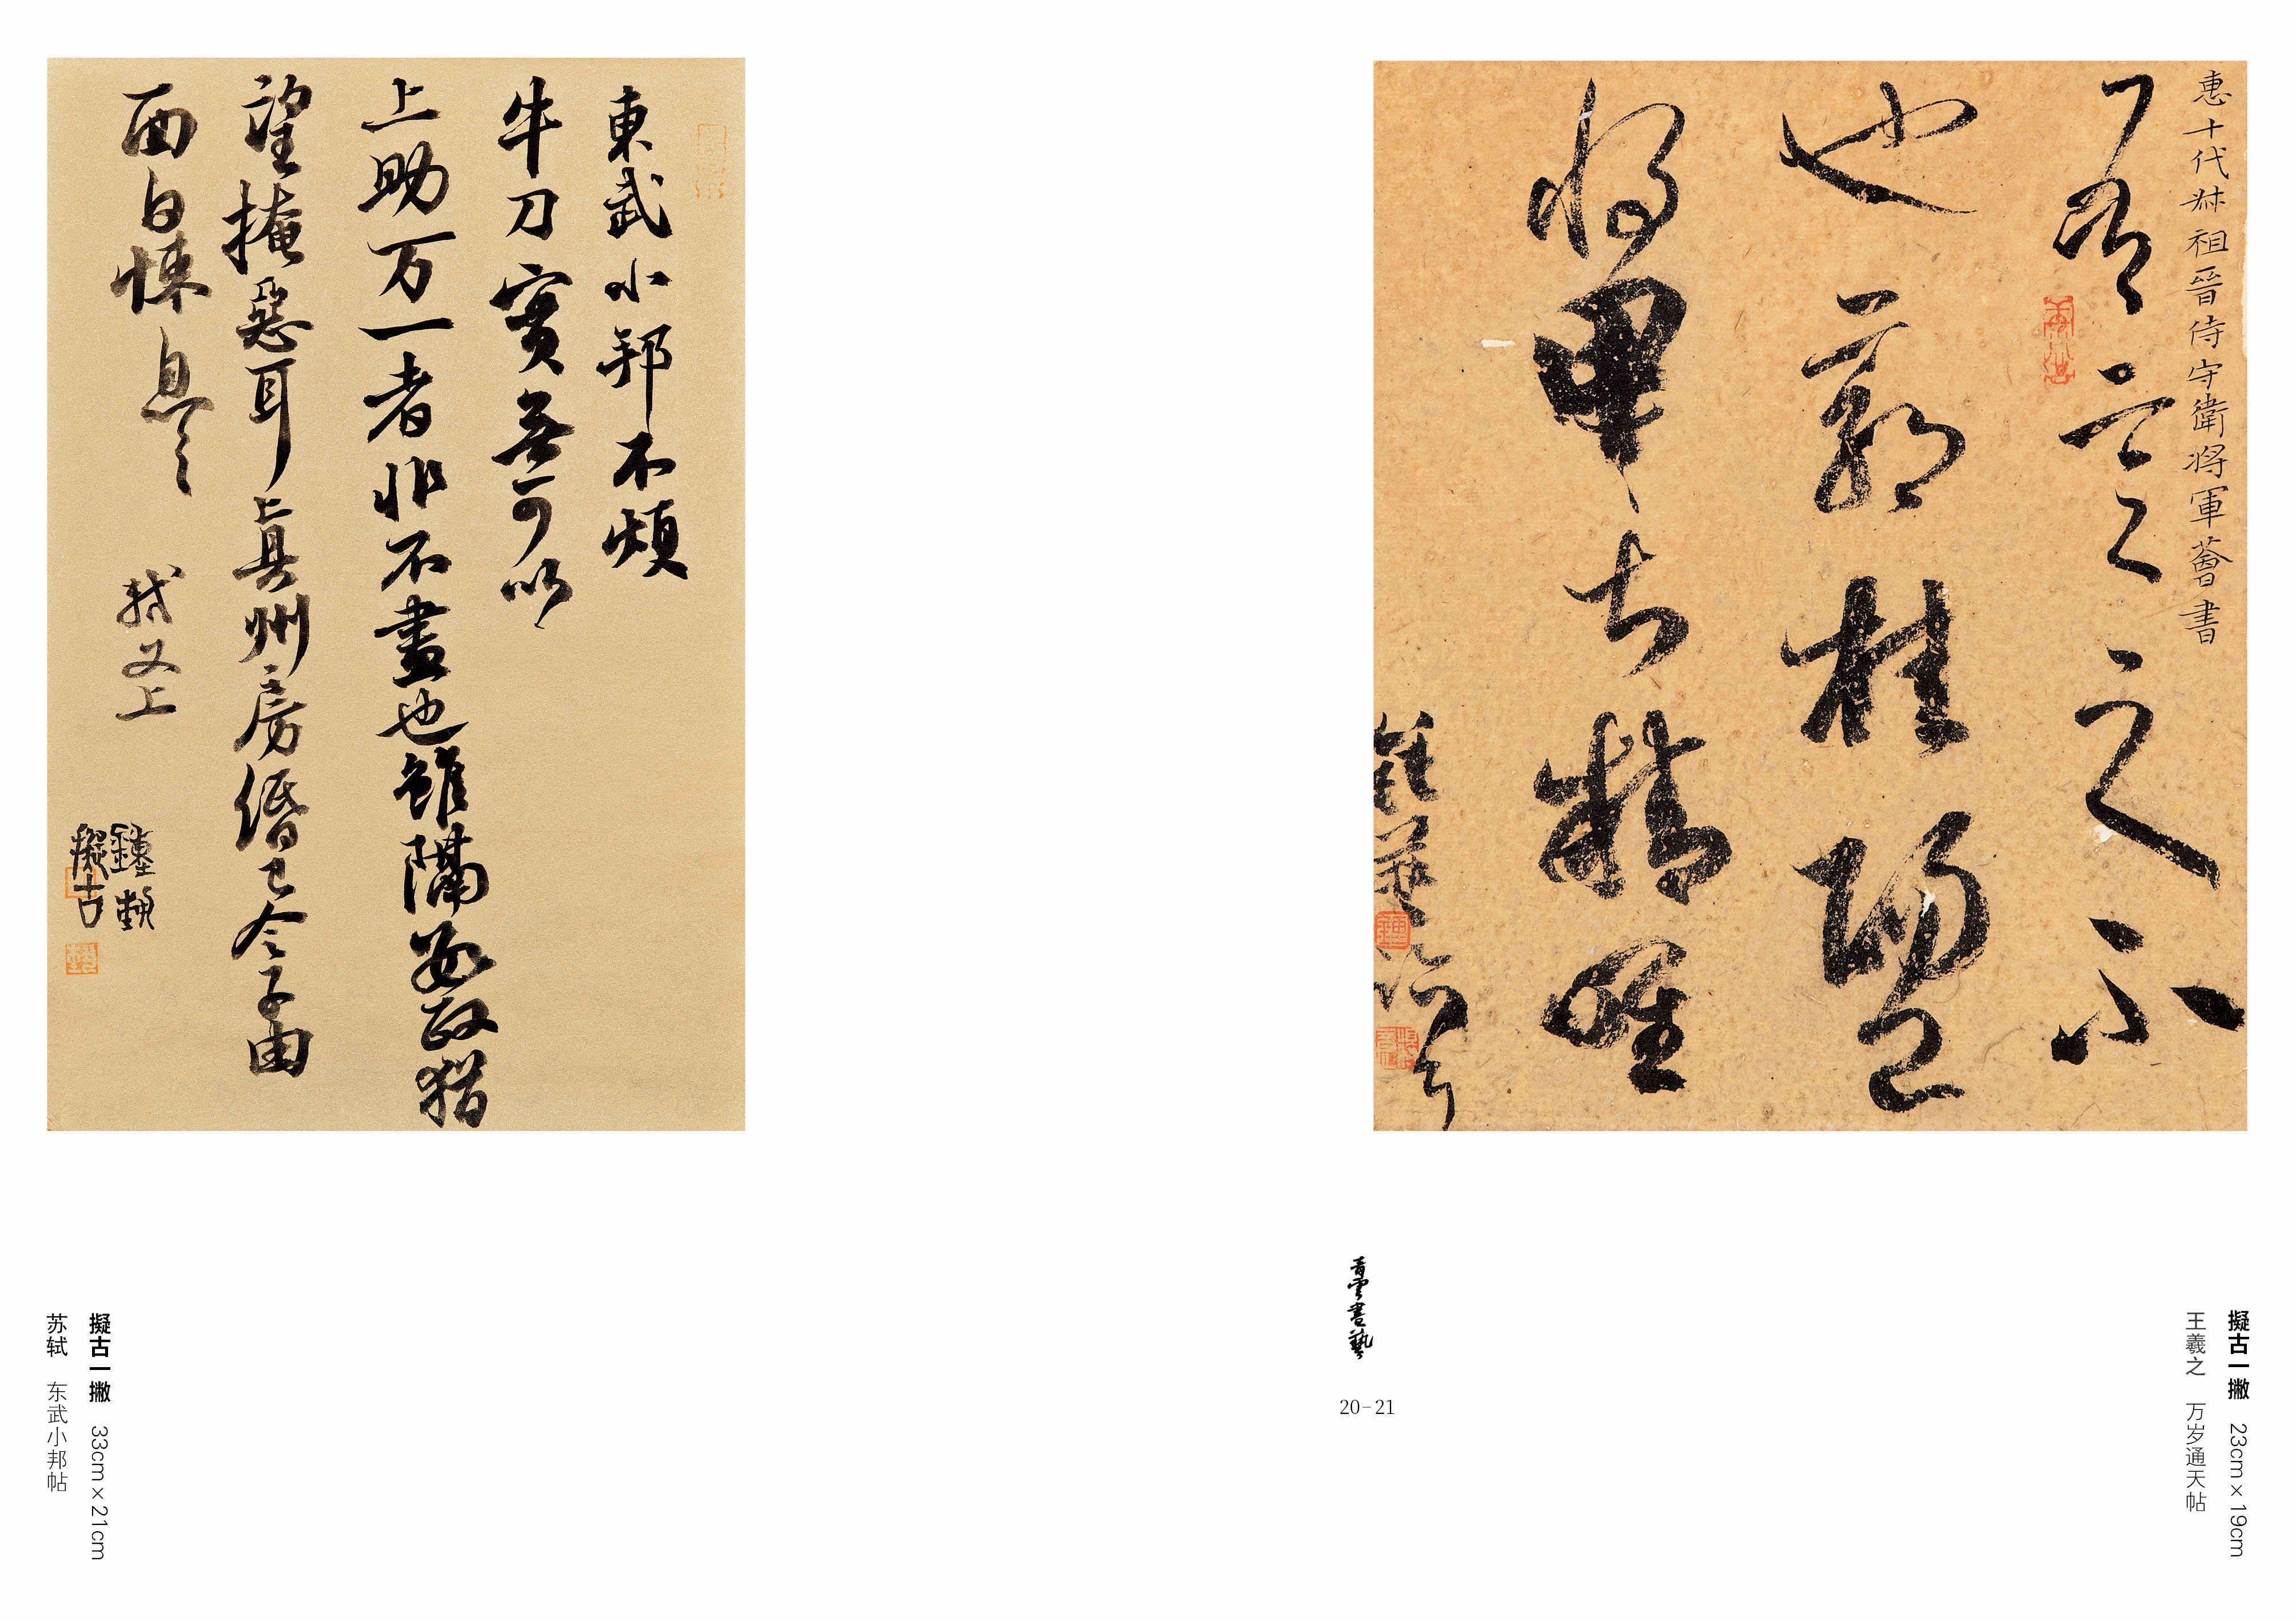 惠十代叔祖晉侍守衛将軍薈書
也郭桂陽已
將甲士精唯
擬古一撇 23cm×19cm
王羲之 万岁通天帖
青雲書藝
20-21
東武小邦不煩
牛刀實無可以
上助万一者非不盡也雖隔數政猶
望掩惡耳真州房緡已令子由
面白悚息
軾又上
擬古
擬古一撇 33cm×21cm
苏轼 东武小邦帖